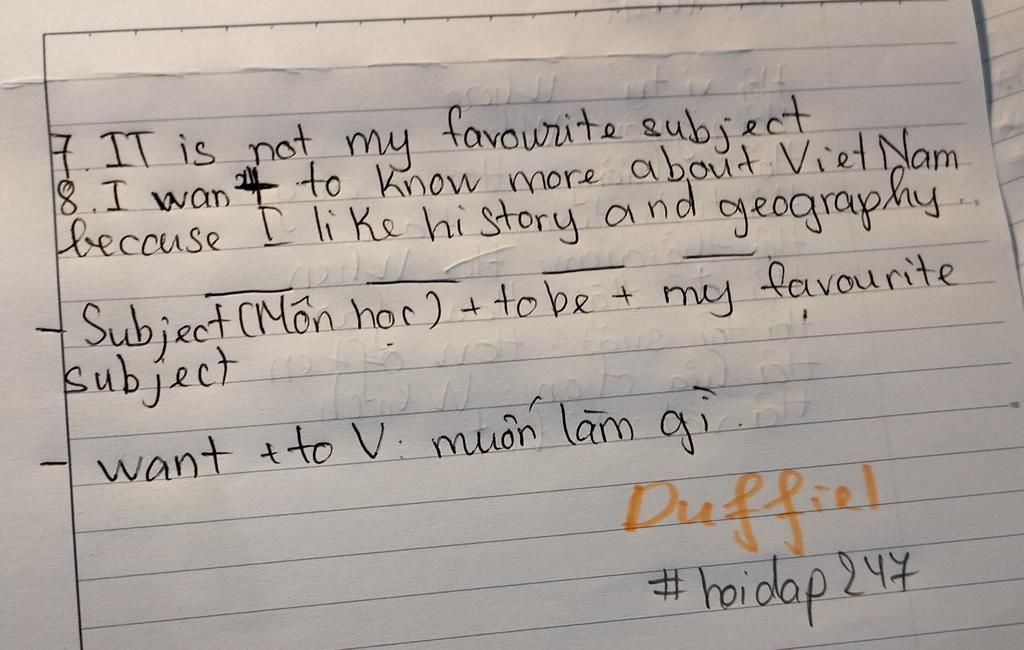 7. IT is not my favourite subject
8. I want to know more about Viet Nam
because I like history and geography.
- Subject (Môn học) + to be + my favourite
subject
- want + to V: muốn làm gì.
Duffiel
#hoidap247